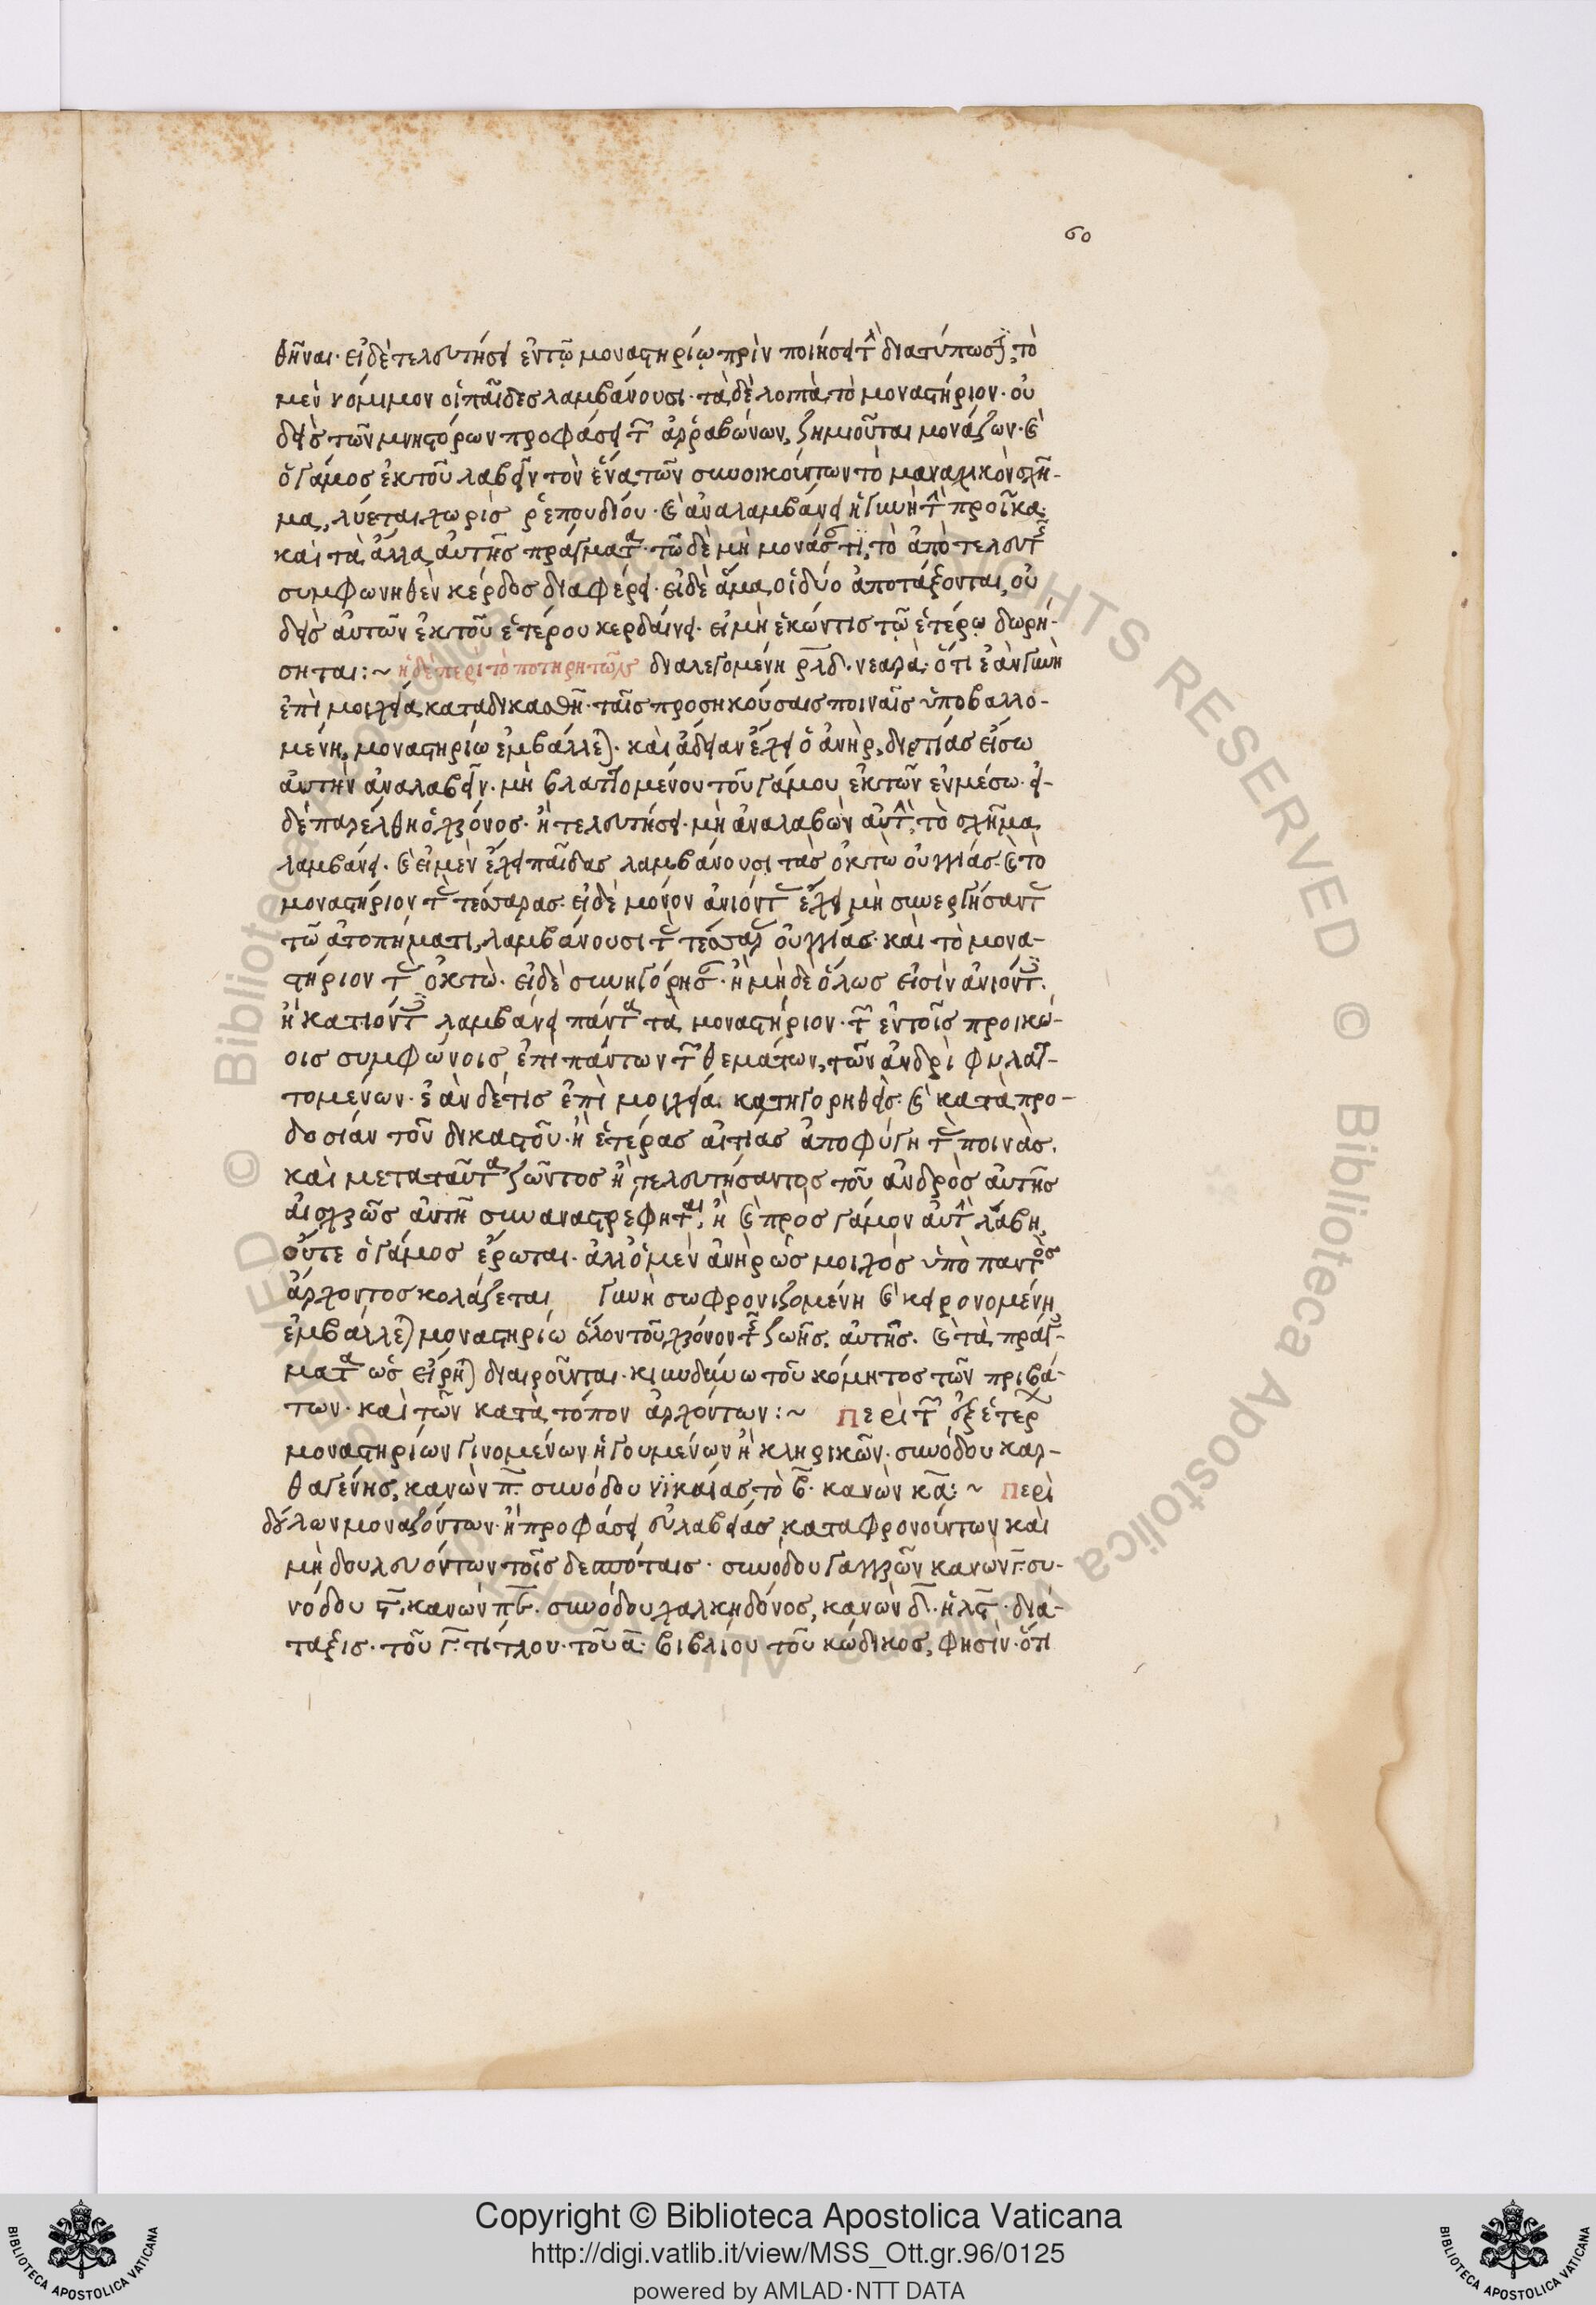 60
θῆναι· εἰ δὲ τελευτήσει ἐν τῷ μοναστηρίῳ πρὶν ποιήσει τὴν διατύπωσιν, τὸ
μὲν νόμιμον οἱ παῖδες λαμβάνουσι· τὰ δὲ λοιπὰ, τὸ μοναστήριον· οὐ
δεὶς τῶν μνηστόρων προφάσει τῶν ἀρῥαβώνων, ζημιοῦται μονάζων· καὶ
ὁ γάμος ἐκ τοῦ λαβεῖν τὸν ἕνα τῶν συνοικούντων τὸ μοναχικὸν σχῆ-
μα, λύεται χωρὶς ῥεπουδίου· καὶ ἀναλαμβάνει ἡ γυνὴ τὴν προῖκα,
καὶ τὰ ἄλλα αὐτῆς πράγματα· τῷ δὲ μὴ μονάσαντι, τὸ ἀπὸ τελευτῆς
συμφωνηθὲν κέρδος διαφέρει· εἰ δὲ ἅμα οἱ δύο ἀποτάξονται, οὐ
δεὶς αὐτῶν ἐκ τοῦ ἑτέρου κερδαίνει· εἰ μὴ ἑκών τις τῷ ἑτέρῳ δωρή-
σηται :~ ἡ δὲ περὶ διαλεγομένη ρλδ· νεαρὰ· ὅτι ἐὰν γυνὴ
ἐπὶ μοιχείᾳ καταδικασθῇ· ταῖς προσηκούσαις ποιναῖς ὑποβαλλο-
μένη, μοναστηρίω ἐμβάλλεται· καὶ ἄδειαν ἔχει ὁ ἀνὴρ, διετίας εἴσω
αὐτὴν ἀναλαβεῖν· μὴ βλαπτομένου τοῦ γάμου ἐκ τῶν ἐν μέσω· εἰ
δὲ παρέλθη ὁ χρόνος· ἢ τελευτήσει· μὴ ἀναλαβὼν αὐτὴν, τὸ σχῆμα
λαμβάνει· καὶ εἰ μὲν ἔχει παῖδας λαμβάνουσι τὰς ὀκτὼ οὐγγίας· καὶ τὸ
μοναστήριον τὰς τέσσαρας· εἰ δὲ μόνον ἀνιόντας ἔχει μὴ συνεργήσαντας
τῶ ἀτοπήματι, λαμβάνουσι τὰς τέσσαρας οὐγγίας· καὶ τὸ μονα-
στήριον τὰς ὀκτὼ· εἰ δὲ συνηγόρησαν· ἢ μὴ δὲ ὅλως εἰσὶν ἀνιόντες·
ἢ κατιόντες λαμβάνει πάντα τὰ μοναστήριον· τῶν ἐν τοῖς προικώ-
οις συμφώνοις ἐπὶ πάντων τῶν θεμάτων, τῶν ἀνδρὶ φυλατ-
τομένων· ἐὰν δέ τις ἐπὶ μοιχείᾳ κατηγορηθεὶς· καὶ κατὰ προ-
δοσίαν τοῦ δικαστοῦ· ἢ ἑτέρας αἰτίας ἀποφύγη τὰς ποινὰς·
καὶ μετὰ ταῦτα ζῶντος ἢ τελευτήσαντος τοῦ ἀνδρὸς αὐτῆς
αἰσχρῶς αὐτῆ συναναστρέφηται, ἢ καὶ πρὸς γάμον αὐτὴν λάβη,
οὔτε ὁ γάμος ἔρωται· ἀλλ' ὁ μὲν ἀνὴρ ὡς μοιχὸς ὑπὸ παντὸς
ἄρχοντος κολάζεται γυνὴ σωφρονιζομένη καὶ κειρονομένη
ἐμβάλλεται μοναστηρίω ὅλον τοῦ χρόνον τῆς ζωῆς αὐτῆς· καὶ τὰ πράγ-
ματα ὡς εἴρηται διαιροῦνται· κινδύνω τοῦ κόμητος τῶν πριβά-
των· καὶ τῶν κατὰ τόπον ἀρχόντων :~ Περὶ τῶν ἐξ ἑτέρων
μοναστηρίων γινομένων ἡγουμένων ἢ κληρικῶν· συνόδου καρ-
θαγένης, κανὼν π· συνόδου νικαίας τὸ β· κανὼν κα :~ Περὶ
δούλων μοναζόντων· ἢ προφάσει εὐλαβείας καταφρονούντων καὶ
μὴ δουλευόντων τοῖς δεσπόταις· συνόδου γαγγρῶν κανὼν γ· συ-
νόδου ς· κανὼν πβ· συνόδου χαλκηδόνος, κανὼν δ· ἡ λς· διά-
ταξις· τοῦ γ· τίτλου· τοῦ α· βιβλίου τοῦ κώδικος, φησὶν· ὅτι
Copyright © Biblioteca Apostolica Vaticana
http://digi.vatlib.it/view/MSS_Ott.gr.96/0125
powered by AMLAD·NTT DATA